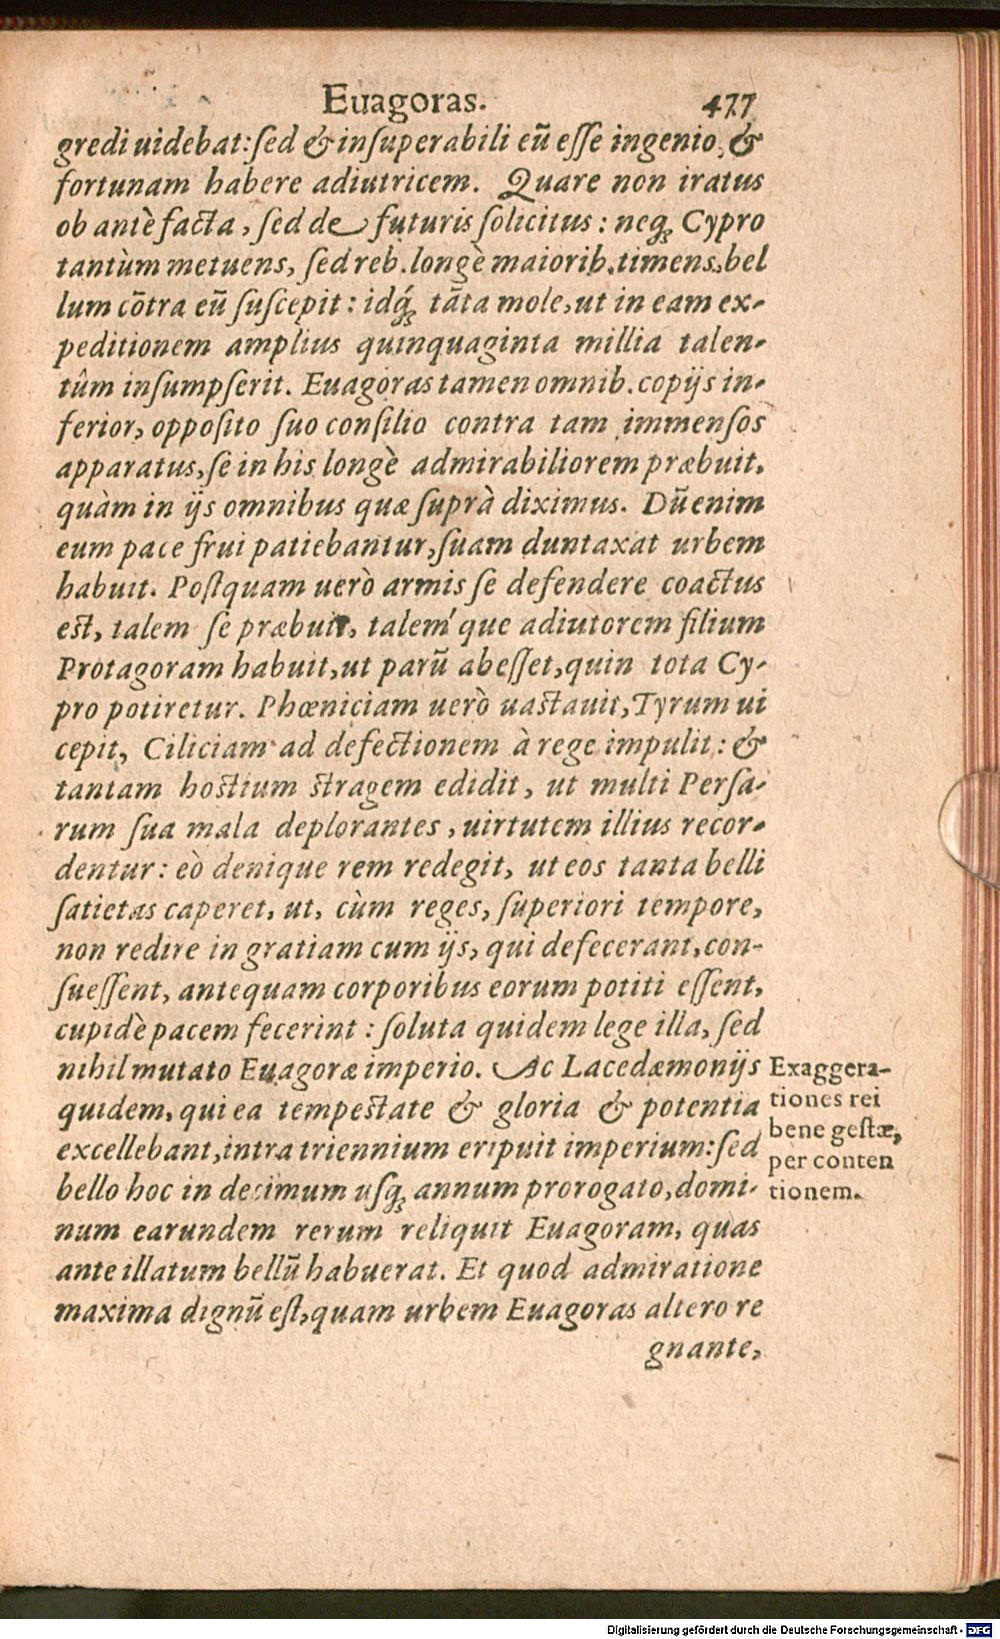 Euagoras. 477
gredi uidebat: ſed & inſuperabili eũ eſſe ingenio, &
fortunam habere adiutricem. Quare non iratus
ob antè facta, ſed de futuris ſolicitus: neq; Cypro
tantùm metuens, ſed reb. longè maiorib. timens, bel
lum cõtra eũ ſuſcepit: idq́; tãta mole, ut in eam ex-
peditionem amplius quinquaginta millia talen-
tûm inſumpſerit. Euagoras tamen omnib. copijs in-
ferior, oppoſito ſuo conſilio contra tam immenſos
apparatus, ſe in his longè admirabiliorem præbuit,
quàm in ijs omnibus quæ ſuprà diximus. Dũ enim
eum pace frui patiebantur, ſuam duntaxat urbem
habuit. Poſtquam uerò armis ſe defendere coactus
eſt, talem ſe præbuit, taleḿ que adiutorem filium
Protagoram habuit, ut parũ abeſſet, quin tota Cy-
pro potiretur. Phœniciam uerò uaſtauit, Tyrum ui
cepit, Ciliciam ad defectionem à rege impulit: &
tantam hoſtium ſtragem edidit, ut multi Perſa-
rum ſua mala deplorantes, uirtutem illius recor-
dentur: eò denique rem redegit, ut eos tanta belli
ſatietas caperet, ut, cùm reges, ſuperiori tempore,
non redire in gratiam cum ijs, qui defecerant, con-
ſueſſent, antequam corporibus eorum potiti eſſent,
cupidè pacem fecerint: ſoluta quidem lege illa, ſed
nihil mutato Euagoræ imperio. Ac Lacedæmonijs
quidem, qui ea tempeſtate & gloria & potentia
excellebant, intra triennium eripuit imperium: ſed
bello hoc in decimum uſq; annum prorogato, domi-
num earundem rerum reliquit Euagoram, quas
ante illatum bellũ habuerat. Et quod admiratione
maxima dignũ eſt, quam urbem Euagoras altero re
gnante,
Exaggera-
tiones rei
bene geſtæ,
per conten
tionem.
Digitalisierung gefördert durch die Deutsche Forschungsgemeinschaft - DFG